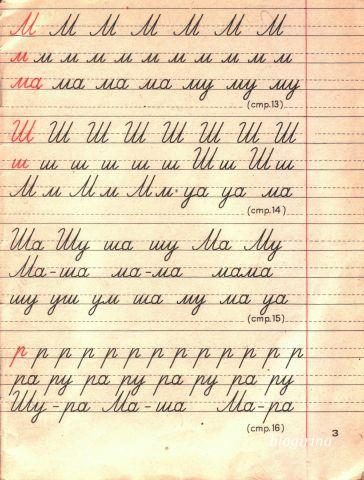 М М М М М М М М
м м м м м м м м м м м м
ма ма ма ма му му му
(стр.13)
Ш Ш Ш Ш Ш Ш Ш Ш
ш ш ш ш ш ш Ш ш Ш ш
М м М м М м уа уа ма
(стр.14)
Ша Шу ша шу Ма Му
Ма-ша ма-ма мама
шу уш ум ша му ма уа
(стр.15)
р р р р р р р р р р р р р р
ра ру ра ру ра ру ра ру
Шу-ра Ма-ша Ма-ра
(стр.16)
3
biogirino